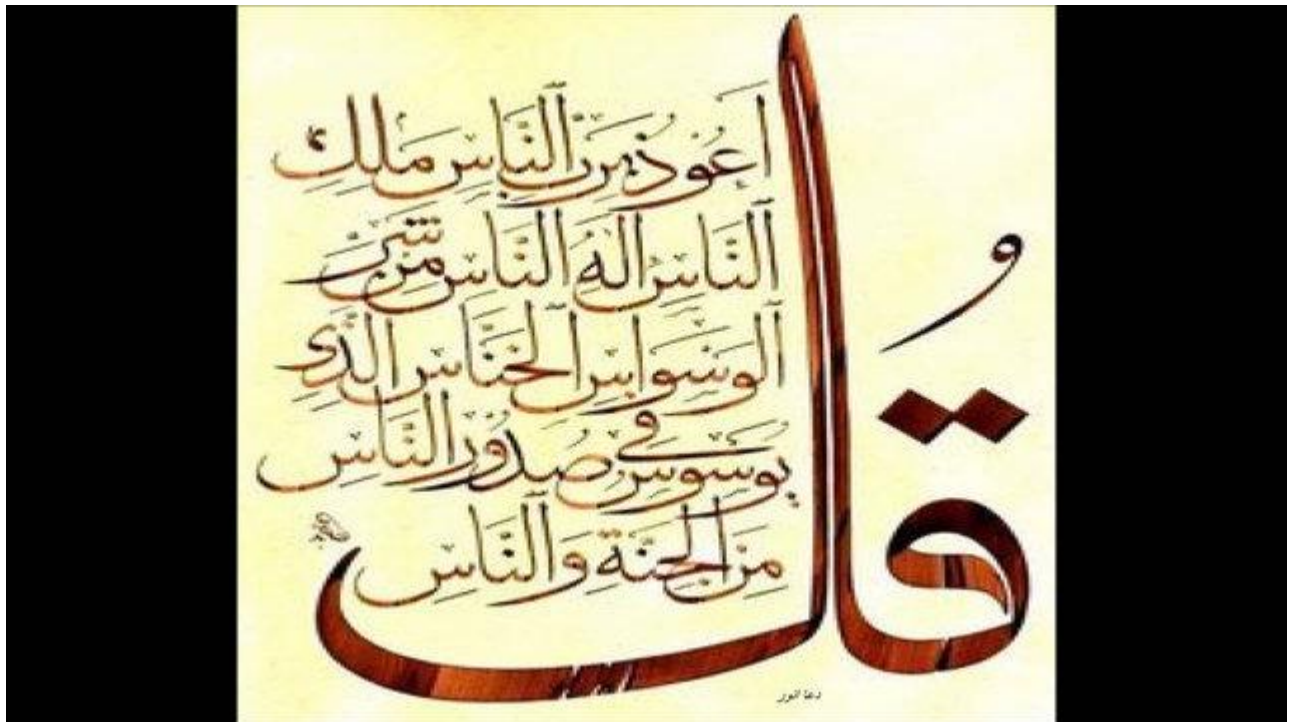 قُل
اَعُوْذُ بِرَبِّ النَّاسِ مَلِكِ
النَّاسِ اِلٰهِ النَّاسِ مِنْ شَرِّ
الْوَسْوَاسِ الْخَنَّاسِ الَّذِي
يُوَسْوِسُ فِي صُدُوْرِ النَّاسِ
مِنَ الْجِنَّةِ وَالنَّاسِ
دعا انور